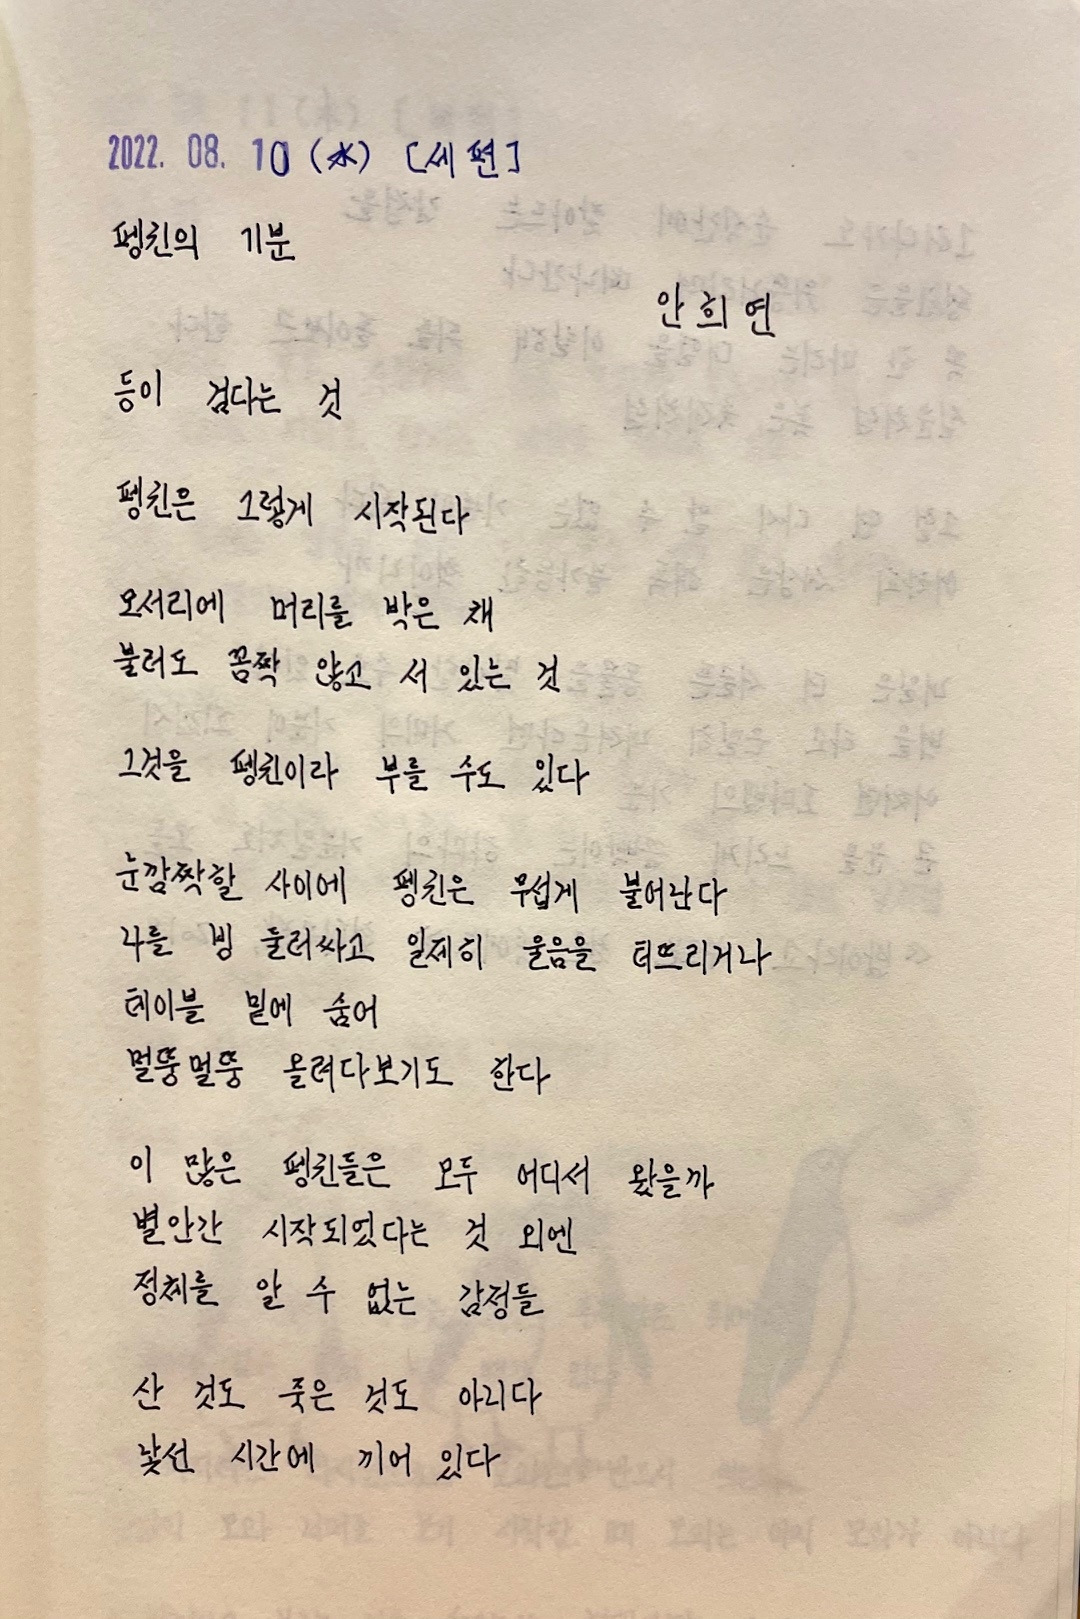 2022. 08. 10 (水) [세 편]
펭귄의 기분
안희연
등이 검다는 것
펭귄은 그렇게 시작된다
모서리에 머리를 박은 채
불러도 꼼짝 않고 서 있는 것
그것을 펭귄이라 부를 수도 있다
눈 깜짝할 사이에 펭귄은 무섭게 불어난다
나를 빙 둘러싸고 일제히 울음을 터뜨리거나
테이블 밑에 숨어
멀뚱멀뚱 올려다보기도 한다
이 많은 펭귄들은 모두 어디서 왔을까
별안간 시작되었다는 것 외엔
정체를 알 수 없는 감정들
산 것도 죽은 것도 아리다
낯선 시간에 끼어 있다